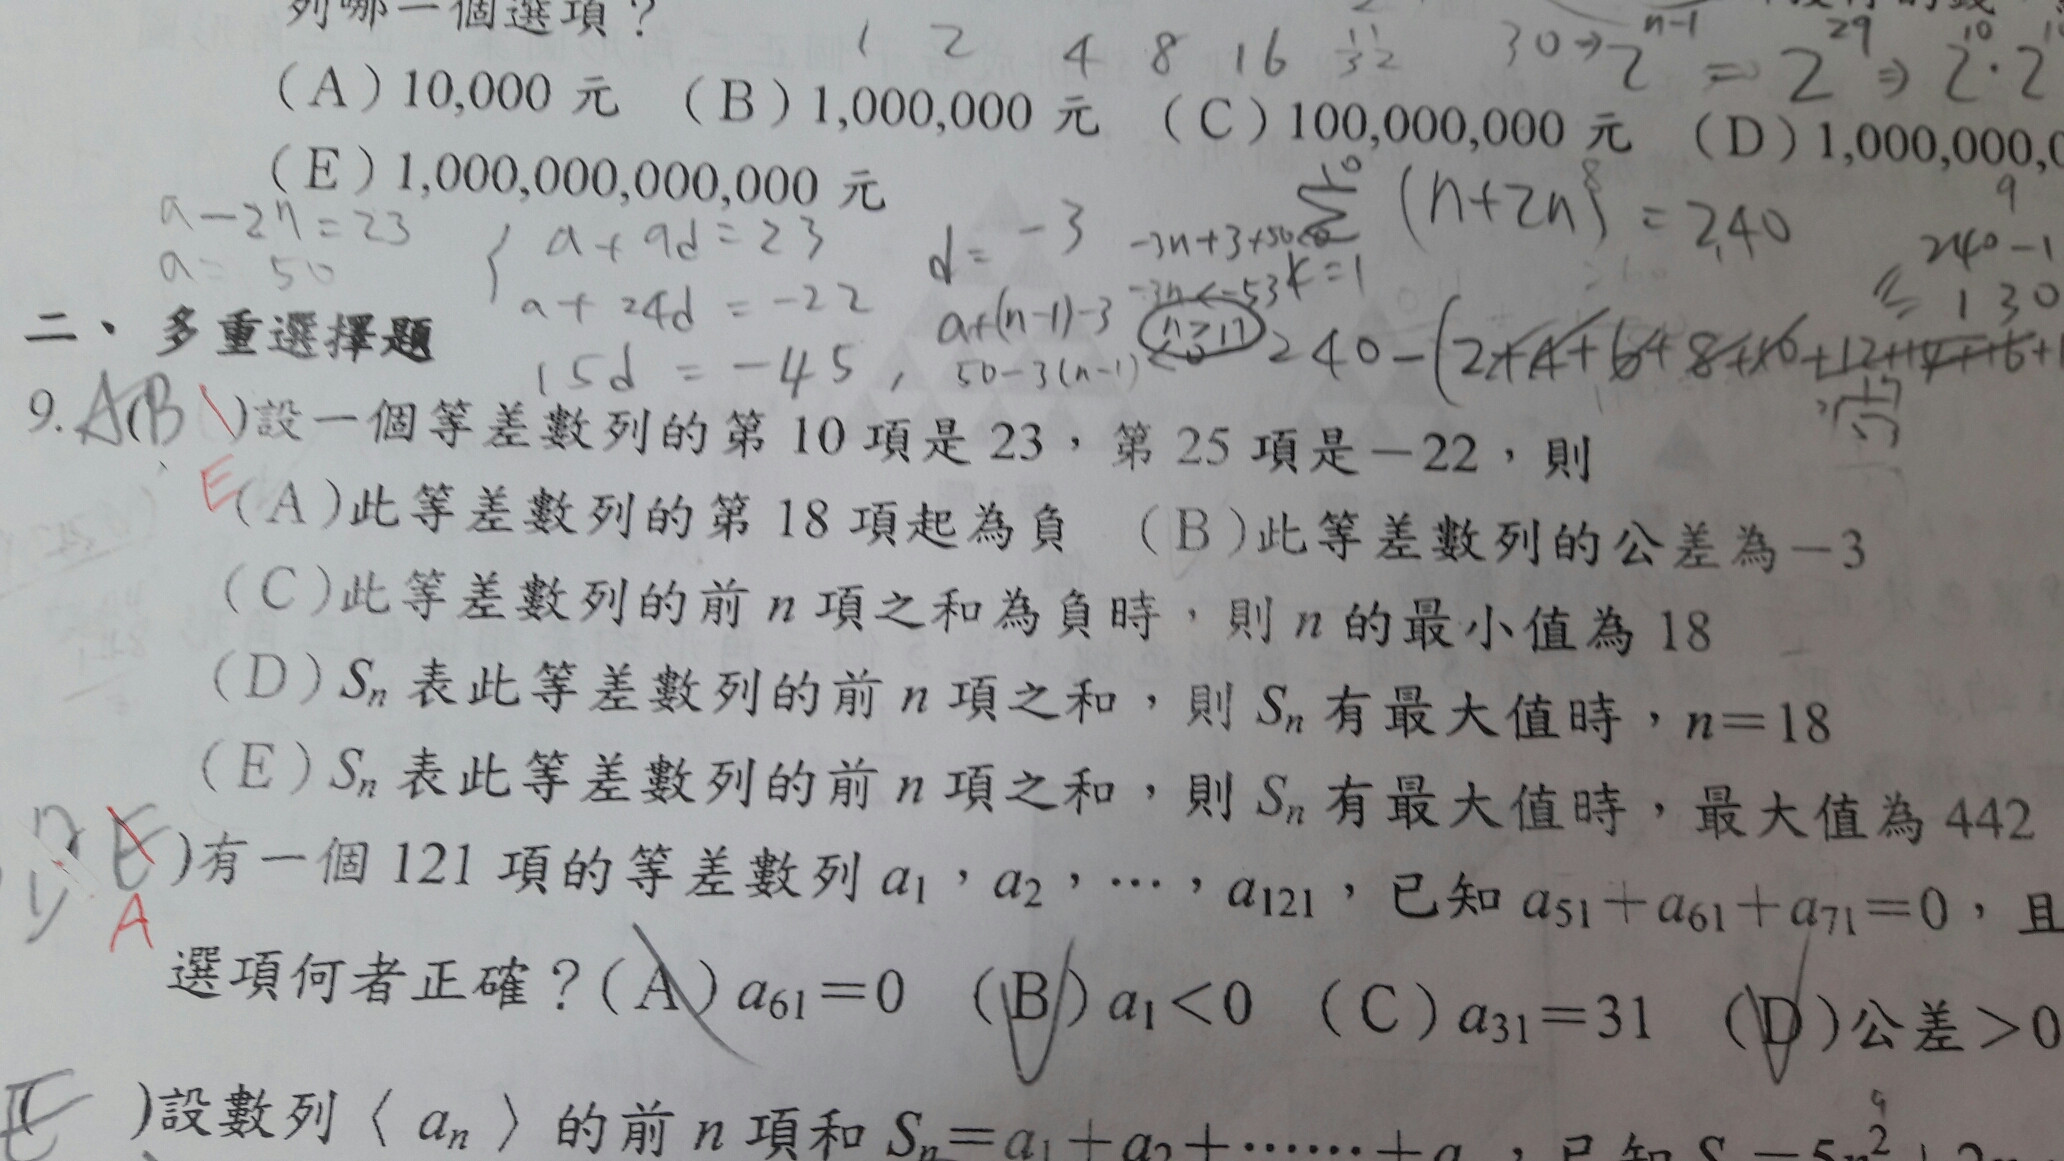 列哪一個選項？
1 2 4 8 16 32 30→2^{n-1} = 2^{29} ⇒ 2^{10}·2^{10}
(A) 10,000 元 (B) 1,000,000 元 (C) 100,000,000 元 (D) 1,000,000,0
(E) 1,000,000,000,000 元
a-27=23
a= 50
a+9d=23
a+24d=-22
15d=-45,
d=-3
a+(n-1)-3
50-3(n-1)<0
-3n+3+50<0
-3n<-53
n≥17
(n+2n) = 240
k=1
240-1
130
240-(2+4+6+8+10+12+14+16+
二、多重選擇題
9. AB )設一個等差數列的第 10 項是 23，第 25 項是－22，則
E
(A)此等差數列的第 18 項起為負 (B)此等差數列的公差為－3
(C)此等差數列的前 n 項之和為負時，則 n 的最小值為 18
(D) Sn 表此等差數列的前 n 項之和，則 Sn 有最大值時，n=18
(E) Sn 表此等差數列的前 n 項之和，則 Sn 有最大值時，最大值為 442
E )有一個 121 項的等差數列 a1，a2，…，a121，已知 a51+a61+a71=0，且
A
選項何者正確？(A) a61=0 (B) a1<0 (C) a31=31 (D)公差>0
E )設數列〈an〉的前 n 項和 Sn=a1+a2+……+a，已知 S=5n2+2n